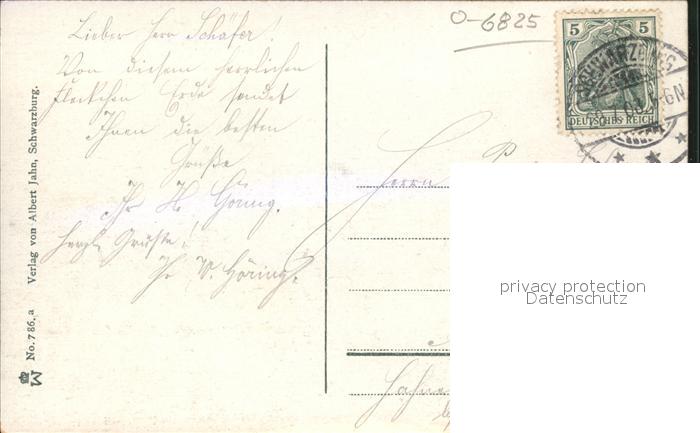 O-6825
Lieber Herr Schäfer!
Von diesem herrlichen
Fleckchen Erde sendet
Ihnen die besten
Grüße
Ihr H. Göring.
Herzl. Grüße!
Ihr
5 5
DEUTSCHES REICH
SCHWARZBURG
6N
Herrn
privacy protection
Datenschutz
Verlag von Albert Jahn, Schwarzburg.
No. 786. a